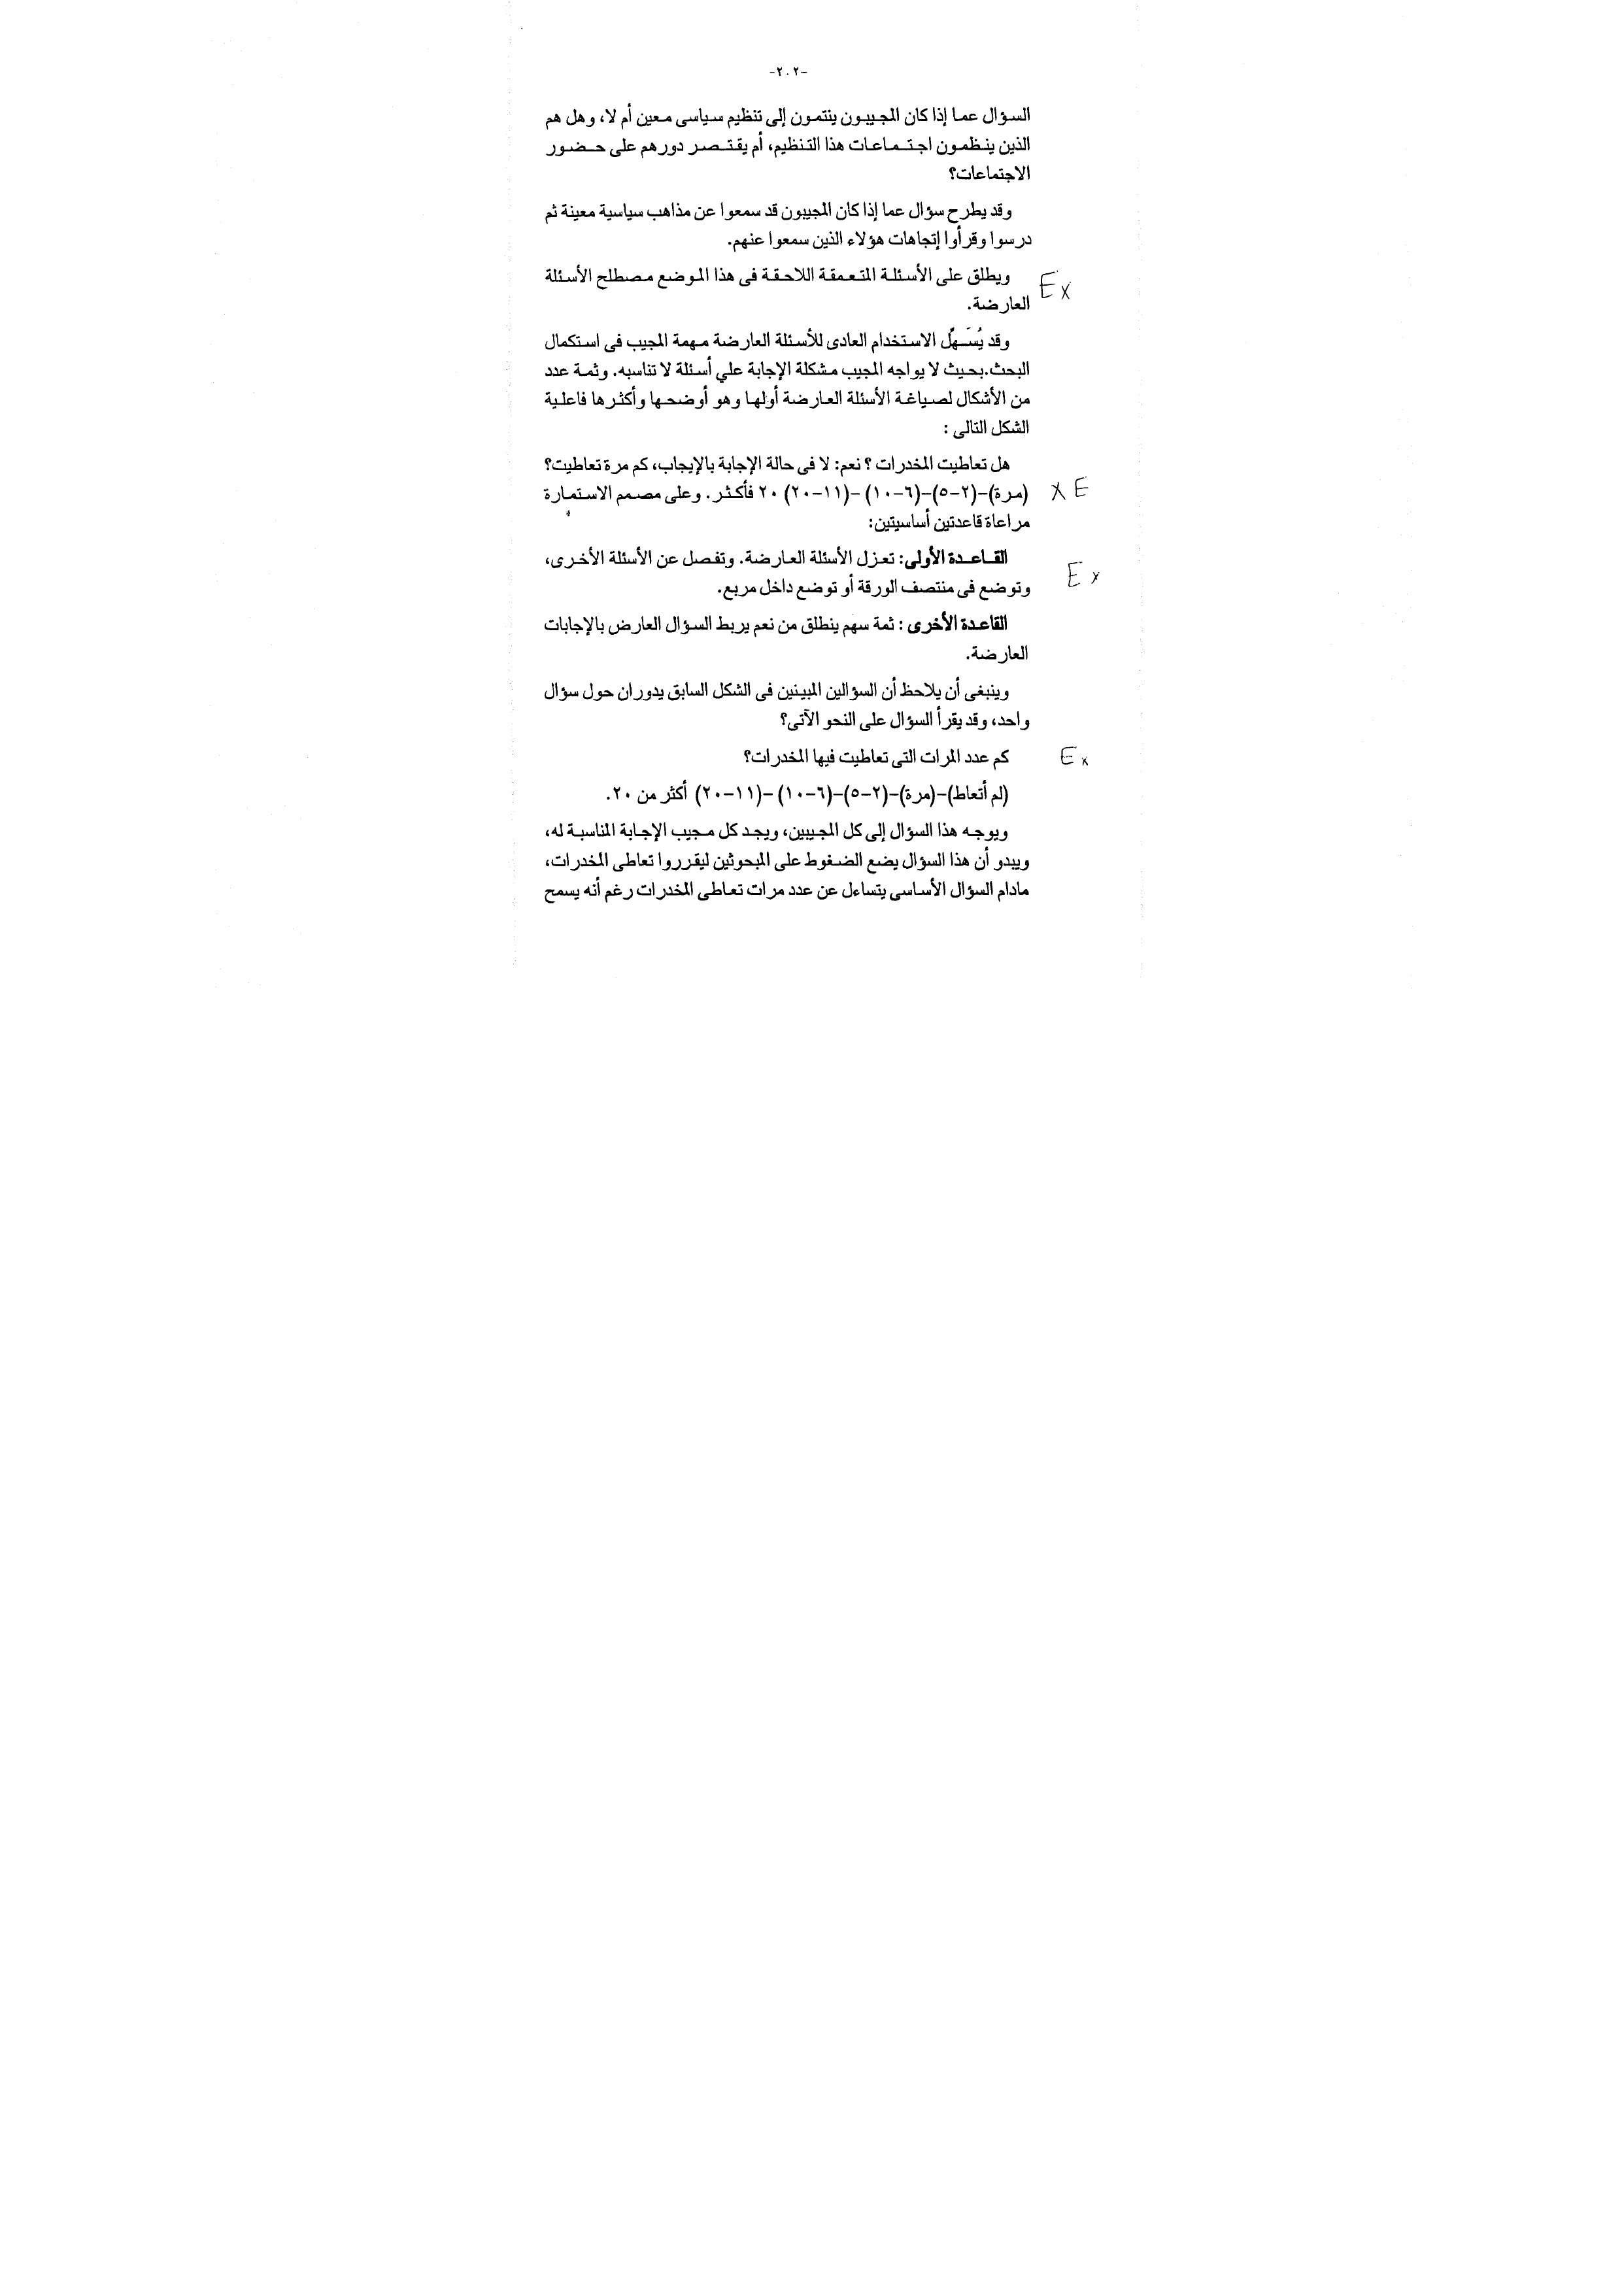 -٢٠٢-
السؤال عما إذا كان المجيبون ينتمون إلى تنظيم سياسى معين أم لا، وهل هم
الذين ينظمون اجتماعات هذا التنظيم، أم يقتصر دورهم على حضور
الاجتماعات؟
وقد يطرح سؤال عما إذا كان المجيبون قد سمعوا عن مذاهب سياسية معينة ثم
درسوا وقرأوا إتجاهات هؤلاء الذين سمعوا عنهم.
ويطلق على الأسئلة المتعمقة اللاحقة فى هذا الموضع مصطلح الأسئلة Ex
العارضة.
وقد يُسَهِّل الاستخدام العادى للأسئلة العارضة مهمة المجيب فى استكمال
البحث.بحيث لا يواجه المجيب مشكلة الإجابة علي أسئلة لا تناسبه. وثمة عدد
من الأشكال لصياغة الأسئلة العارضة أولها وهو أوضحها وأكثرها فاعلية
الشكل التالى :
هل تعاطيت المخدرات ؟ نعم: لا فى حالة الإجابة بالإيجاب، كم مرة تعاطيت؟
(مرة)-(٢-٥)-(٦-١٠)-(١١-٢٠) ٢٠ فأكثر. وعلى مصمم الاستمارة X E
مراعاة قاعدتين أساسيتين:
القاعدة الأولى: تعزل الأسئلة العارضة. وتفصل عن الأسئلة الأخرى، Ex
وتوضع فى منتصف الورقة أو توضع داخل مربع.
القاعدة الأخرى : ثمة سهم ينطلق من نعم يربط السؤال العارض بالإجابات
العارضة.
وينبغى أن يلاحظ أن السؤالين المبينين فى الشكل السابق يدوران حول سؤال
واحد، وقد يقرأ السؤال على النحو الآتى؟
كم عدد المرات التى تعاطيت فيها المخدرات؟ Ex
(لم أتعاط)-(مرة)-(٢-٥)-(٦-١٠)-(١١-٢٠) أكثر من ٢٠.
ويوجه هذا السؤال إلى كل المجيبين، ويجد كل مجيب الإجابة المناسبة له،
ويبدو أن هذا السؤال يضع الضغوط على المبحوثين ليقرروا تعاطى المخدرات،
مادام السؤال الأساسى يتساءل عن عدد مرات تعاطى المخدرات رغم أنه يسمح